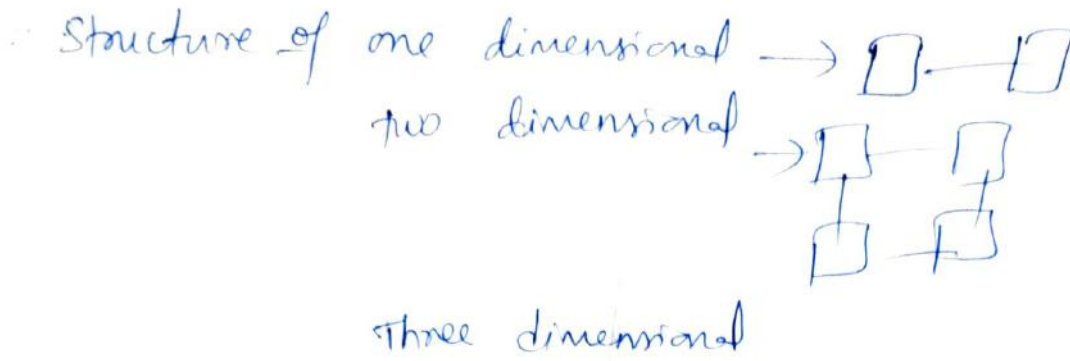 Structure of one dimensional →
two dimensional →
Three dimensional